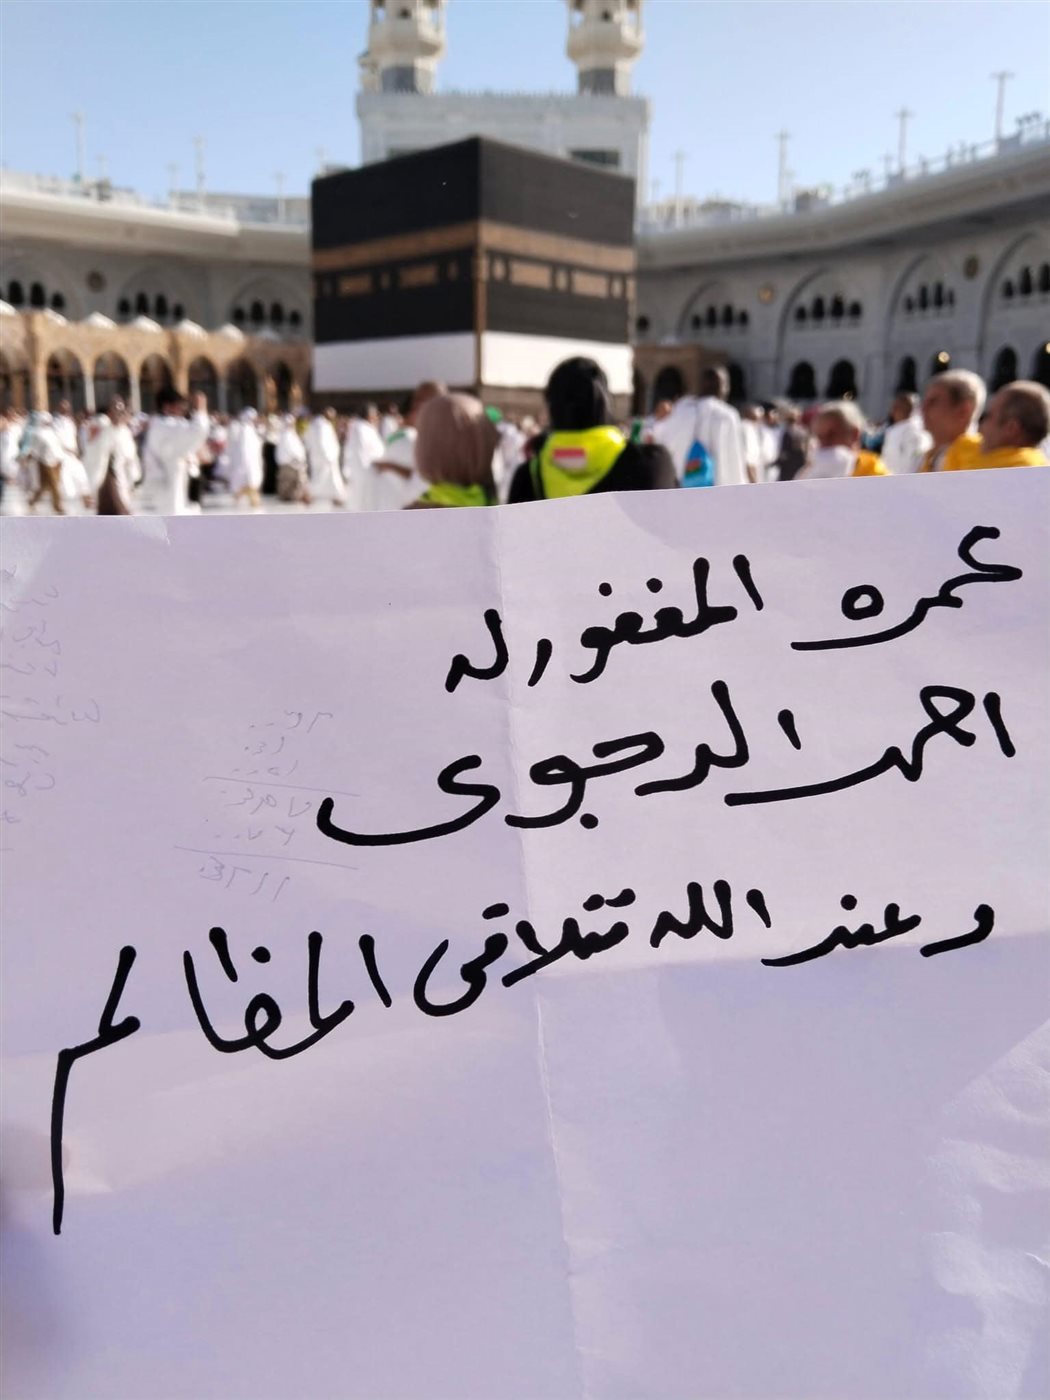 عمره المغفور له
احمد الدجوى
وعند الله تتلاقى المظالم